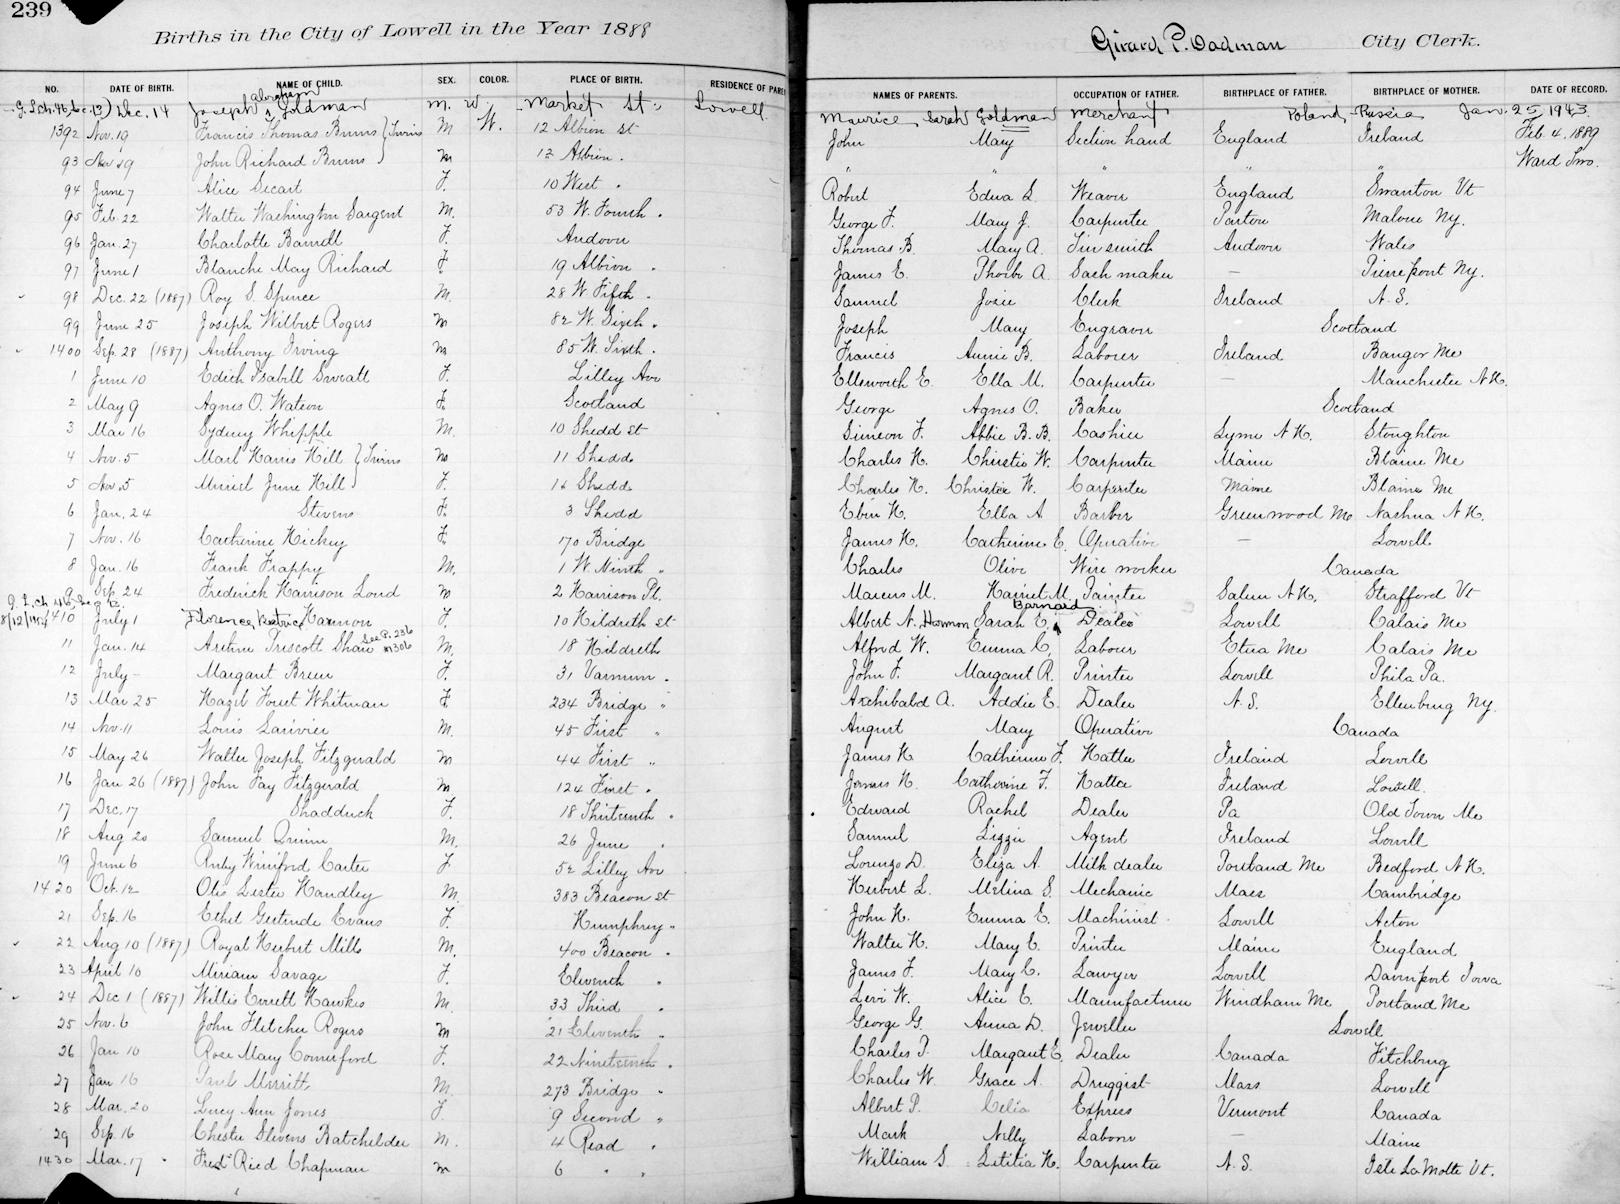 239
Births in the City of Lowell in the Year 1888
Girard P. Dadman City Clerk.
NO. DATE OF BIRTH. NAME OF CHILD. SEX. COLOR. PLACE OF BIRTH. RESIDENCE OF PARE
NAMES OF PARENTS. OCCUPATION OF FATHER. BIRTHPLACE OF FATHER. BIRTHPLACE OF MOTHER. DATE OF RECORD.
G.L. ch. 46 Sec. 13) Dec. 14 Joseph Abraham Goldman M. W. Market St. Lowell Maurice Sarah Goldman Merchant Poland Russia Jan. 25, 1943.
1392 Nov. 19 Francis Thomas Burns } Twins M W. 12 Albion St John Mary Section hand England Ireland Feb. 4. 1889
93 Nov 19 John Richard Burns M 12 Albion . " " " " " Ward Two.
94 June 7 Alice Secart F. 10 West . Robert Edna L Weaver England Swanton Vt
95 Feb. 22 Walter Washington Sargent M. 53 W. Fourth . George F. Mary J. Carpenter Malone Ny.
96 Jan. 27 Charlotte F. Andover Thomas B. Mary A. Tin smith Andover Wales
97 June 1 Blanche May Richard F. 19 Albion . James E. Phoebe A. Sash maker — Pierrepont Ny.
98 Dec. 22 (1887) Roy S. Spence M. 28 W. Fifth . Samuel Josie Clerk Ireland N.S.
99 June 25 Joseph Wilbert Rogers M 82 W. Sixth . Joseph Mary Engraver Scotland
1400 Sep. 28 (1887) Anthony Irving M 85 W. Sixth . Francis Annie B. Laborer Ireland Bangor Me
1 June 10 Edith Isabill Sweatt F. Lilley Ave Ellsworth E. Ella M. Carpenter — Manchester N.H.
2 May 9 Agnes O. Watson F. Scotland George Agnes O. Baker Scotland
3 Mar 16 Sydney Whipple M. 10 Shedd St Simeon F. Abbie B. B. Cashier Lyme N.H. Stoughton
4 Nov. 5 Mark Harris Hill } Twins M 11 Shedd Charles H. Christie W. Carpenter Maine Blaine Me
5 Nov. 5 Muriel June Hill F. 12 Shedd Charles H. Christie W. Carpenter Maine Blaine Me
6 Jan. 24 Stevens F. 3 Shedd Eben H. Ella A Barber Greenwood Me Nashua N.H.
7 Nov. 16 Catherine Hickey F. 170 Bridge James H. Catherine E. Operative — Lowell.
8 Jan. 16 Frank Frappy M. 1 W. Ninth " Charles Olive Wire worker Canada
9 Sep. 24 Frederick Harrison Lord M 2 Harrison Pl. Marcus M. Harriet M. Painter Salem N.H. Strafford Vt
G.L. ch. 46, Sec. 13.
8/12/1954 1410 July 1 Florence Beatrice Harmon F. 10 Hildreth St Albert N. Harmon Sarah E. Barnard Dealer Lowell Calais Me
11 Jan. 14 Arthur Prescott Shaw See P. 236 #1306 M. 18 Hildreth Alfred W. Emma C. Labour Etna Me Calais Me
12 July – Margaret Breen F. 31 Varnum . John F. Margaret R. Printer Lowell Phila Pa.
13 Mar 25 Hazel Foret Whitman F 234 Bridge " Archibald A. Addie E. Dealer N.S. Ellenburg Ny.
14 Nov. 11 Louis Larivier M. 45 First " August May Operative Canada
15 May 26 Walter Joseph Fitzgerald M 44 First " James H Catherine F. Hatter Ireland Lowell
16 Jan 26 (1887) John Fay Fitzgerald M. 124 First . James H. Catherine F. Hatter Ireland Lowell.
17 Dec. 17 Shadduck F. 18 Thirteenth . Edward Rachel Dealer Pa Old Town Me
18 Aug 20 Samuel Quinn M. 26 June . Samuel Lizzie Agent Ireland Lowell
19 June 6 Ruby Winifred Carter F 52 Lilley Ave Lorenzo D. Eliza A. Milk dealer Portland Me Bedford N.H.
1420 Oct. 12 Otis Lester Handley M. 383 Beacon St Herbert L. Melina S. Mechanic Mass Cambridge
21 Sep. 16 Ethel Gertrude Evans F. Humphrey " John H. Emma E. Machinist Lowell Acton
22 Aug 10 (1887) Royal Herbert Mills M. 400 Beacon . Walter H. Mary E. Printer Maine England
23 April 10 Miriam Savage F. Eleventh . James F. Mary C. Lawyer Lowell Davenport Iowa
24 Dec 1 (1887) Willis Everett Hawkes M. 33 Third . Levi W. Alice E. Manufacturer Windham Me Portland Me
25 Nov. 6 John Fletcher Rogers M 21 Eleventh " George G. Anna D. Jeweller Lowell
26 Jan 10 Rose Mary Comerford F. 22 Nineteenth . Charles P. Margaret E. Dealer Canada Fitchburg
27 Jan 16 Paul Merritt M. 273 Bridge " Charles W. Grace A. Druggist Mass Lowell
28 Mar. 20 Lucy Ann Jones F 9 Second " Albert P. Celia Express Vermont Canada
29 Sep. 16 Chester Stevens Batchelder M. 4 Read . Mark Nelly Laborer — Maine
1430 Mar. 17 Fred Ried Chapman M 6 " " William S. Letitia H. Carpenter N.S. Isle La Motte Vt.